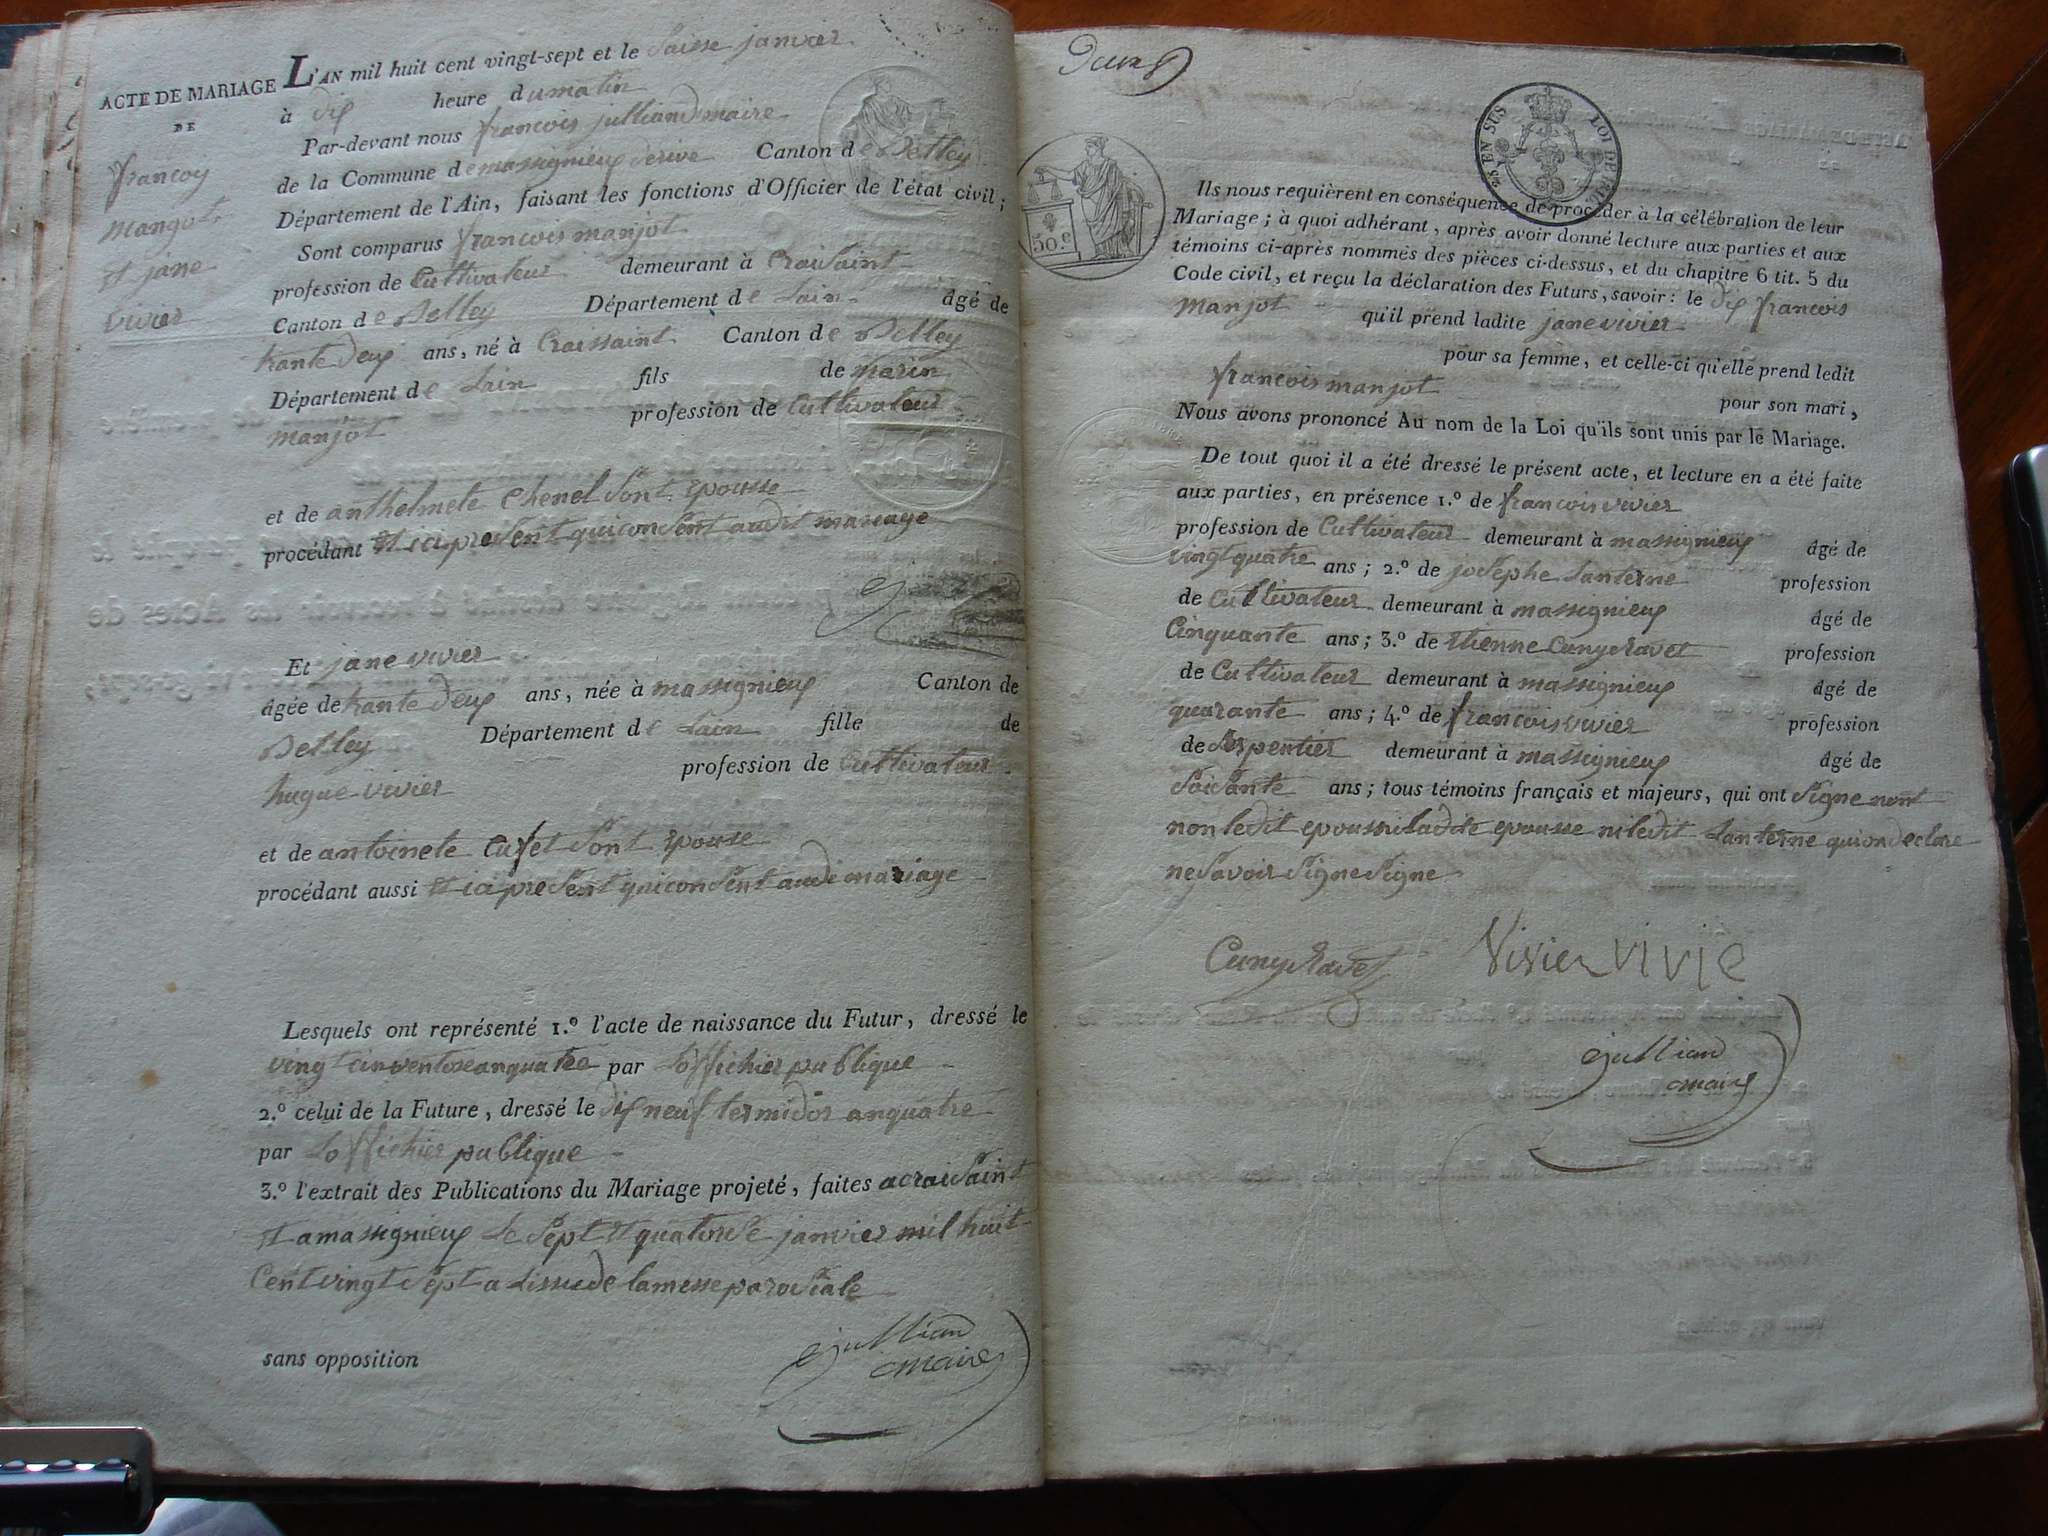 ACTE DE MARIAGE
DE
françoy
mangot
et jane
vivier
L'AN mil huit cent vingt-sept et le saisse janvier
à dix heure dumatin
Par-devant nous francois julliand maire
de la Commune de massignieu derive Canton de Belley
Département de l'Ain, faisant les fonctions d'Officier de l'état civil;
Sont comparus francois manjot
profession de Cultivateur demeurant à Craisaint
Canton de Belley Département de Lain âgé de
trante deux ans, né à Craissaint Canton de Belley
Département de Lain fils de marin
manjot profession de Cultivateur
et de anthelmete Chenel sont epousse
procédant et ici present qui consent audit mariage
Et jane vivier
âgée de trante deux ans, née à massignieux Canton de
Belley Département de Lain fille de
hugue vivier profession de Cultivateur
et de antoinete Curtet sont epouse
procédant aussi et ici present qui consent audi mariage
Lesquels ont représenté 1.º l'acte de naissance du Futur, dressé le
vingt cinventose anquatre par Loffichier publique
2.º celui de la Future, dressé le dix neuf termidor anquatre
par Loffichier publique
3.º l'extrait des Publications du Mariage projeté, faites acraisaint
et amassignieux le sept et quatorse janvier mil huit
Cent vingt sept a Lissuede lamesse parosiale
sans opposition
julliand
maire
Deux
25 EN SUS LOI DE
50.c
Ils nous requièrent en conséquence de procéder à la célébration de leur
Mariage; à quoi adhérant, après avoir donné lecture aux parties et aux
témoins ci-après nommés des pièces ci-dessus, et du chapitre 6 tit. 5 du
Code civil, et reçu la déclaration des Futurs, savoir: le dix francois
manjot qu'il prend ladite jane vivier
pour sa femme, et celle-ci qu'elle prend ledit
francois manjot pour son mari,
Nous avons prononcé Au nom de la Loi qu'ils sont unis par le Mariage.
De tout quoi il a été dressé le présent acte, et lecture en a été faite
aux parties, en présence 1.º de francois vivier
profession de Cultivateur demeurant à massignieux âgé de
vingt quatre ans; 2.º de josephe Lanterne profession
de Cultivateur demeurant à massignieux âgé de
Cinquante ans; 3.º de etienne Cunychavet profession
de Cultivateur demeurant à massignieux âgé de
quarante ans; 4.º de francois vivier profession
de demeurant à massignieux âgé de
soisante ans; tous témoins français et majeurs, qui ont signe nont
non ledit epoussi ladite epousse niledit Lanterne quion declare
nesavoir signe signe
Vivier vivie
julliand
maire